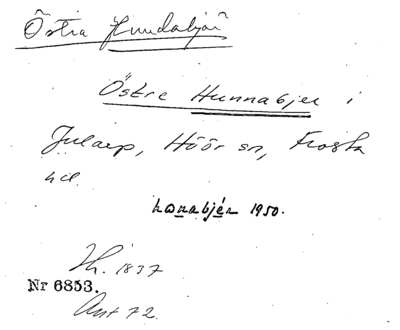 Östra Hundabjär
Östre Hunnabjer i
Julaep, Höör sn, Frosta
hd.
hanabjér 1950.
Th. 1837
Nr 6853.
Ant 72.